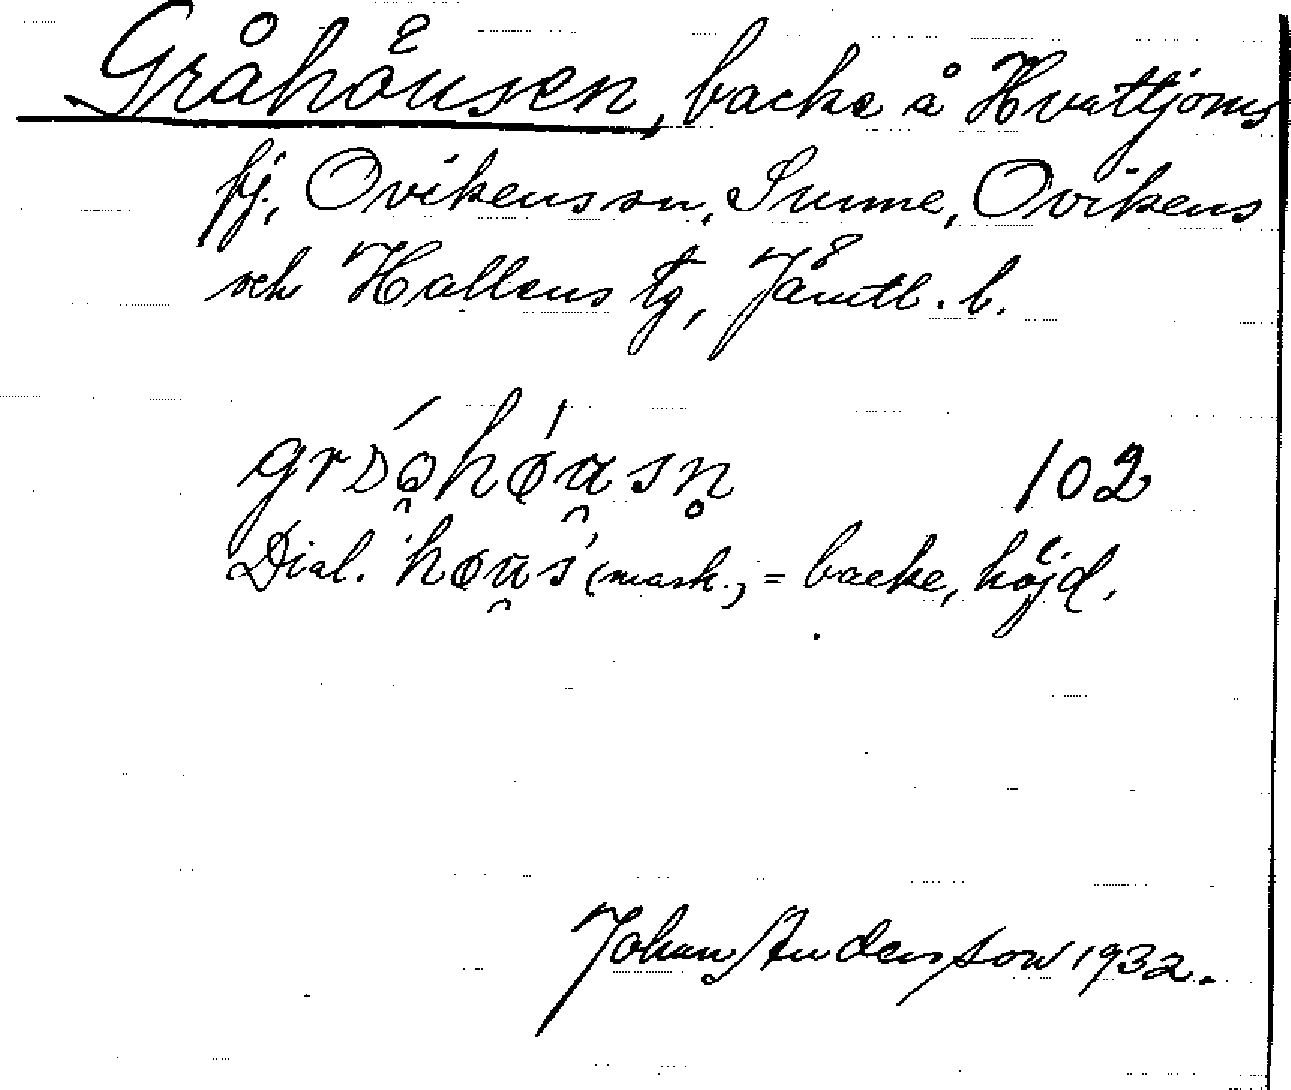 Gråhåusen, backe å Hvattjoms
fj, Ovikens sn, Sunne, Ovikens
och Hallens tg, Jämtl. l.
102
Dial. (mask.) = backe, höjd.
Johan Andersson 1932.